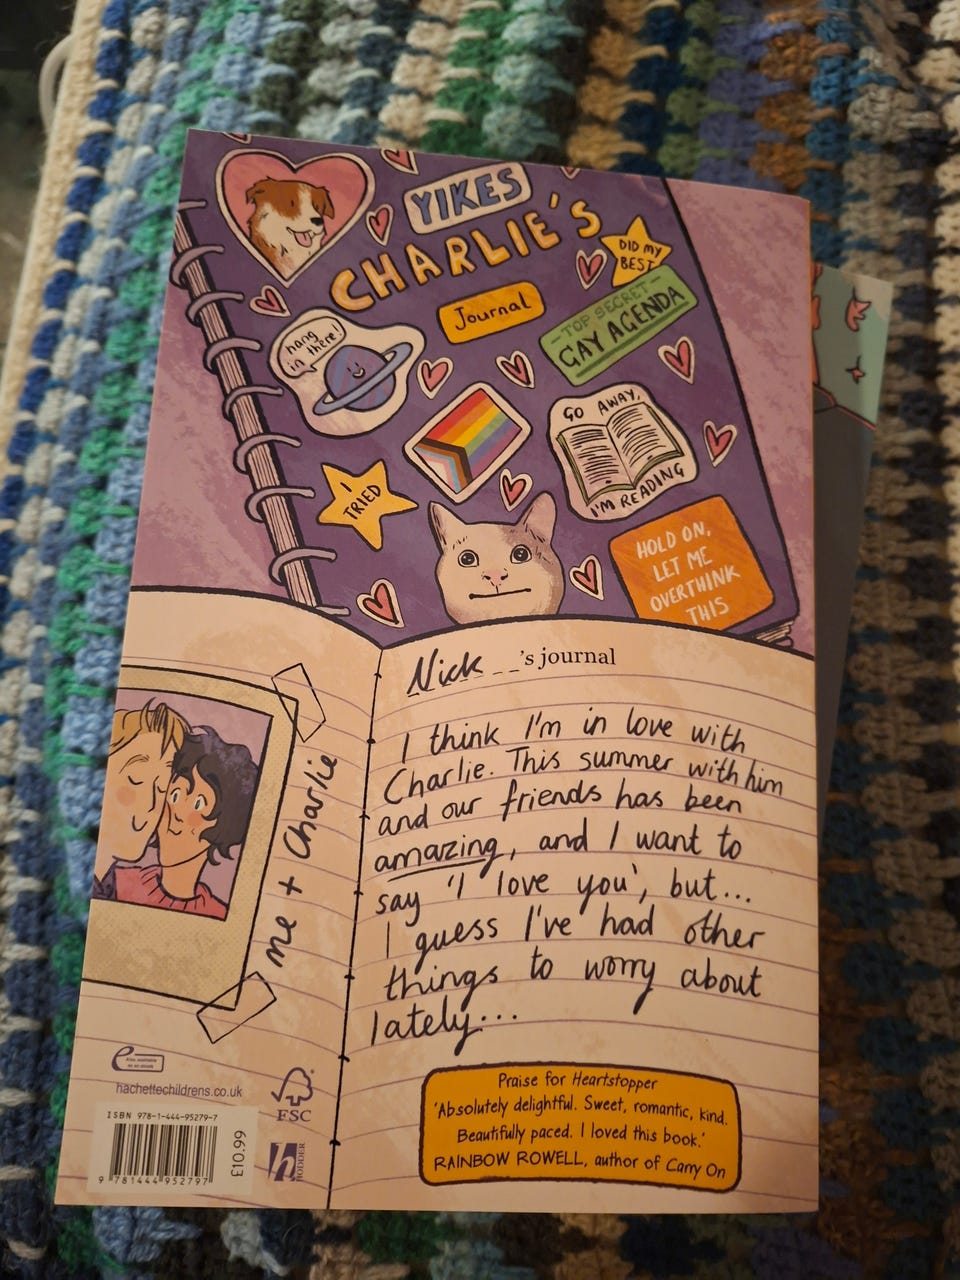 YIKES
CHARLIE'S
Journal
DID MY
BEST
- TOP SECRET -
GAY AGENDA
hang
in there!
GO AWAY,
I'M READING
I
TRIED
HOLD ON,
LET ME
OVERTHINK
THIS
Nick's journal
I think I'm in love with
Charlie. This summer with him
and our friends has been
amazing, and I want to
say 'I love you', but...
I guess I've had other
things to worry about
lately...
me + Charlie
Praise for Heartstopper
'Absolutely delightful. Sweet, romantic, kind.
Beautifully paced. I loved this book.'
RAINBOW ROWELL, author of Carry On
e Also available
as an ebook
hachettechildrens.co.uk
FSC
h HODDER
ISBN 978-1-444-95279-7
9 781444 952797
£10.99